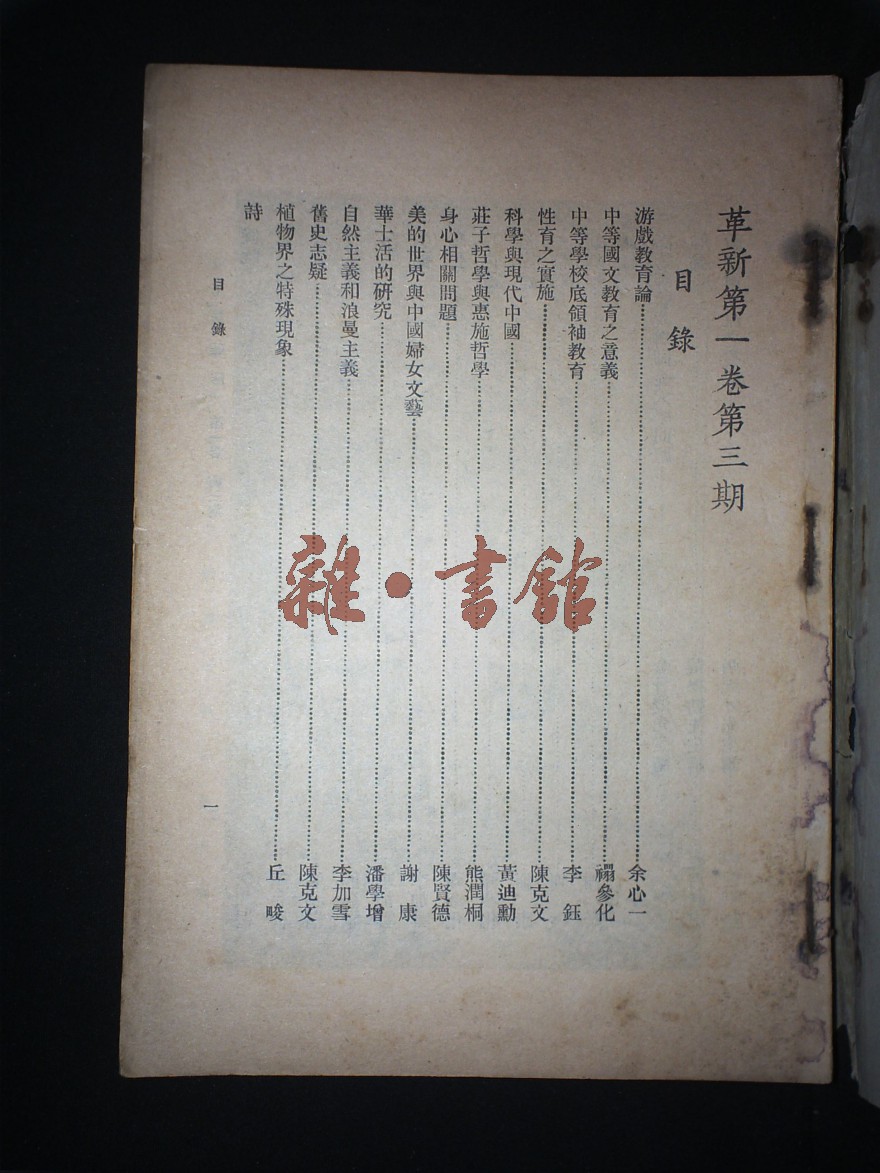 革新第一卷第三期
目錄
游戲教育論……余心一
中等國文教育之意義……禤參化
中等學校底領袖教育……李鈺
性育之實施……陳克文
科學與現代中國……黃迪勳
莊子哲學與惠施哲學……熊潤桐
身心相關問題……陳賢德
美的世界與中國婦女文藝……謝康
華士活的研究……潘學增
自然主義和浪曼主義……李加雪
舊史志疑……陳克文
植物界之特殊現象……丘畯
詩
目錄
一
雜·書館